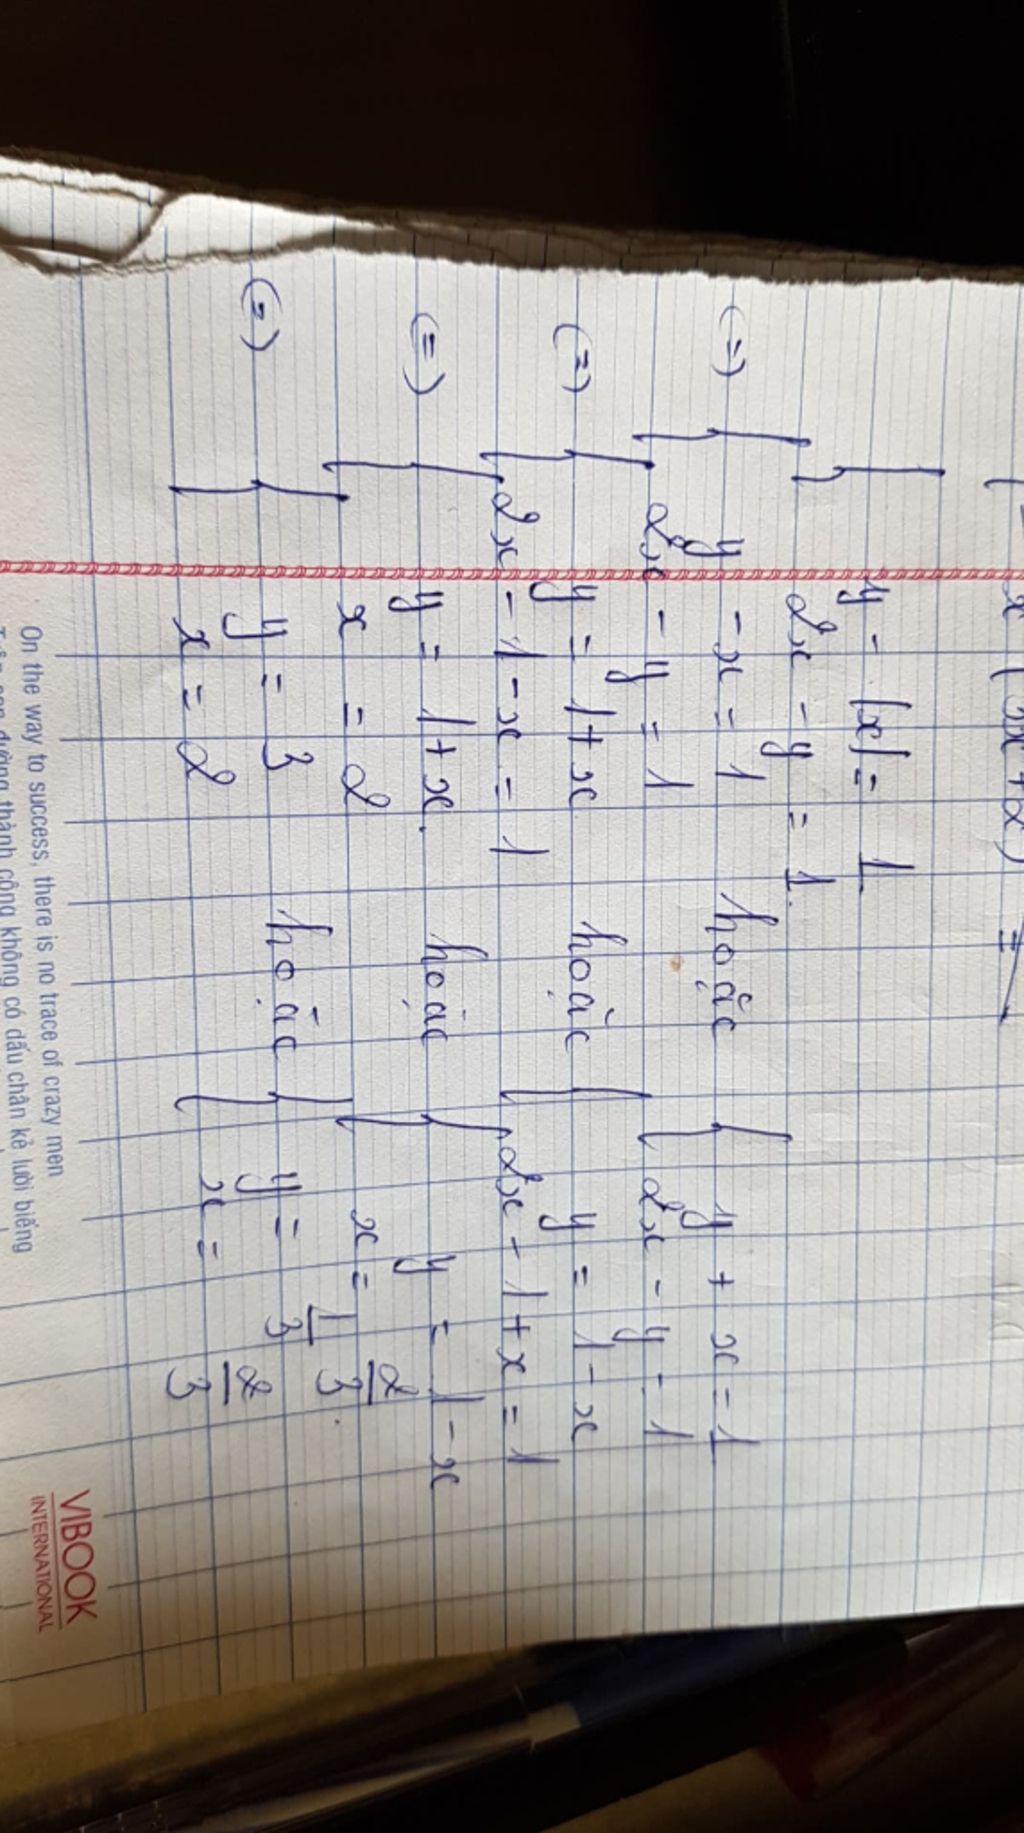 x (3x+2) =
y - |x| = 1
2x - y = 1
(=) y - x = 1 hoặc y + x = 1
2x - y = 1 2x - y = 1
(=) y = 1 + x hoặc y = 1 - x
2x - 1 - x = 1 2x - 1 + x = 1
(=) y = 1 + x hoặc y = 1 - x
x = 2 x = 2/3
(=) y = 3 hoặc y = 1/3
x = 2 x = 2/3
On the way to success, there is no trace of crazy men
đường thành công không có dấu chân kẻ lười biếng
VIBOOK
INTERNATIONAL